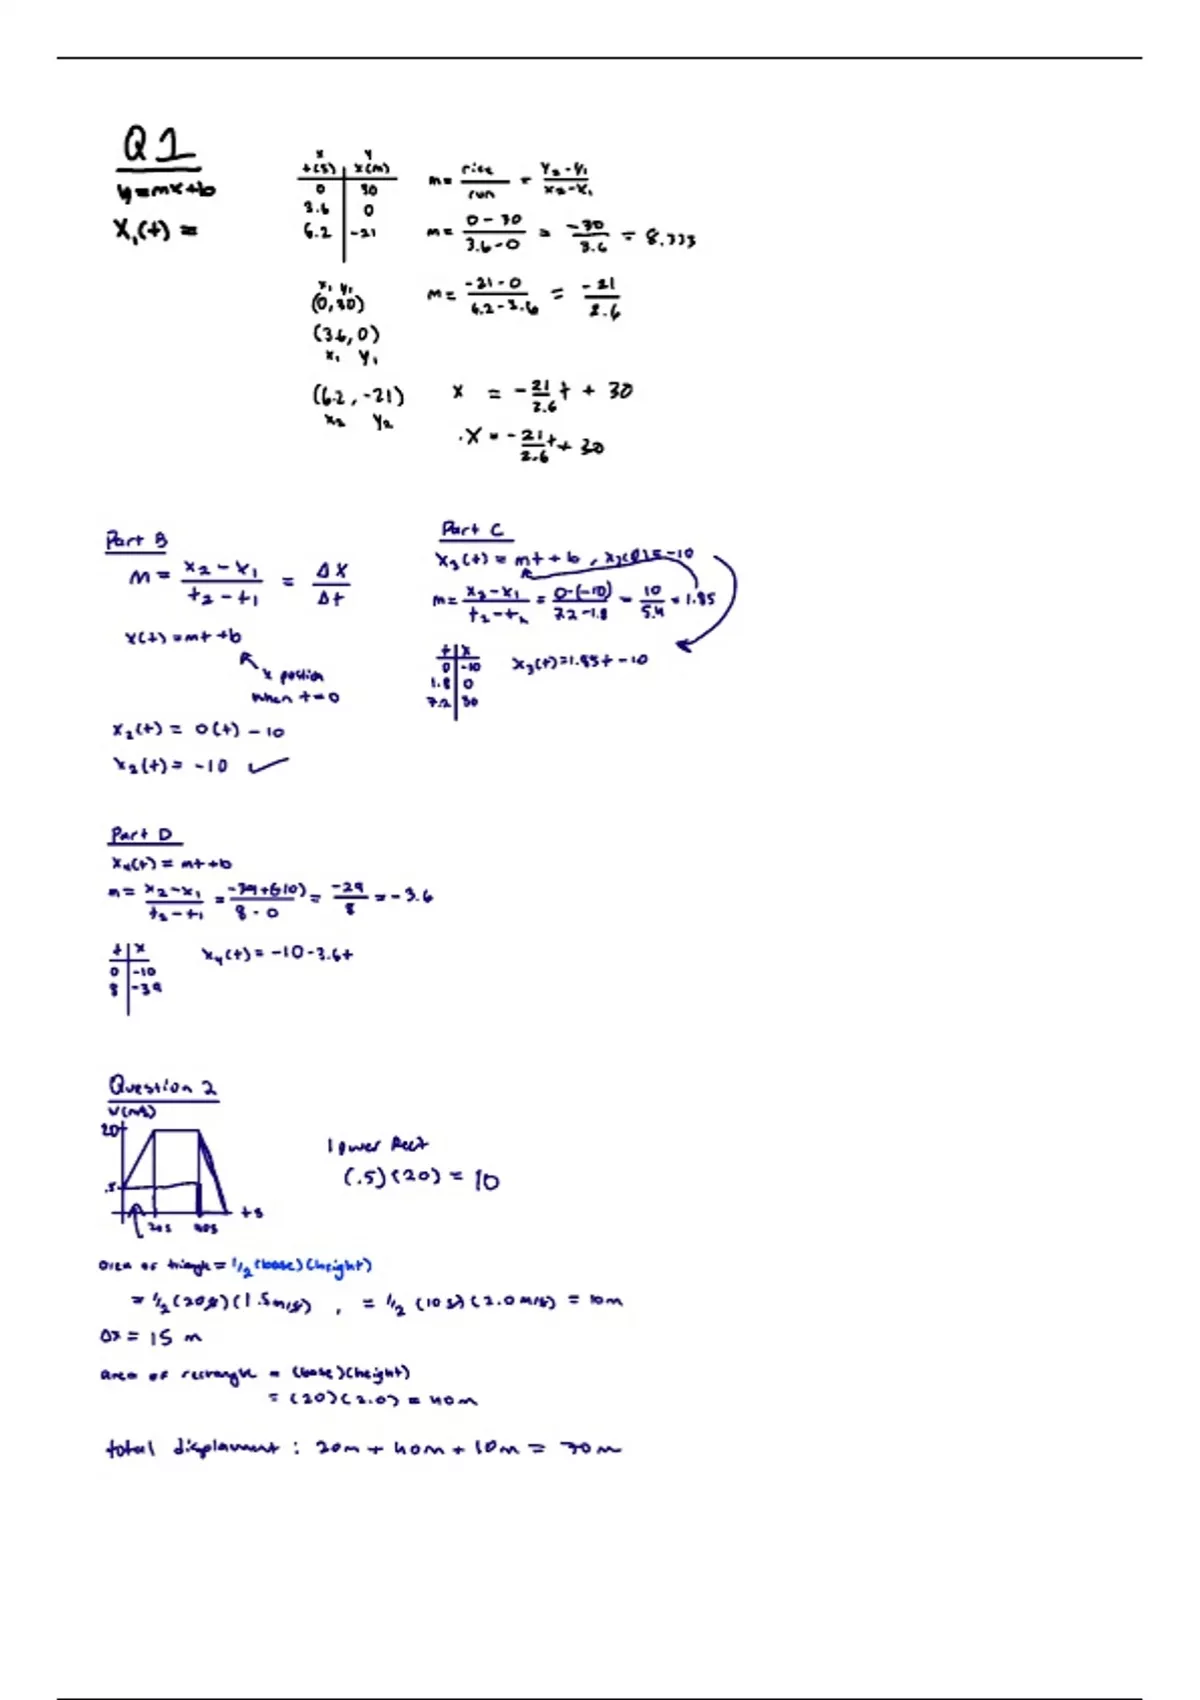 Q1
y=mx+b
X₁(t) =
x y
t(s) x(m)
0 30
3.6 0
6.2 -21
m= rise/run = Y₂-Y₁/X₂-X₁
m= 0-30/3.6-0 = -30/3.6 = 8.333
x₁ y₁
(0,30)
(3.6,0)
x₁ y₁
m= -21-0/6.2-3.6 = -21/2.6
(6.2,-21)
x₂ y₂
x = -21/2.6 t + 30
.X = -21/2.6 t + 30
Part B
m= x₂-x₁/t₂-t₁ = Δx/Δt
x(t)=mt+b
x position
when t=0
x₂(t) = 0(t) - 10
x₂(t) = -10 ✓
Part C
x₃(t) = mt+b, x₃(0)=-10
m= x₂-x₁/t₂-t₁ = 0-(-10)/7.2-1.8 = 10/5.4 = 1.85
t x
0 -10
1.8 0
7.2 30
x₃(t)=1.85t-10
Part D
x₄(t) = mt+b
m= x₂-x₁/t₂-t₁ = -39+(-10)/8-0 = -29/8 = -3.6
t x
0 -10
8 -39
x₄(t) = -10-3.6t
Question 2
V(m/s)
2.0
.5
20s 40s
t s
lower Rect
(.5)(20) = 10
area of triangle = 1/2 (base)(height)
= 1/2 (20s)(1.5m/s) , = 1/2 (10s)(2.0m/s) = 10m
Δx = 15 m
area of rectangle = (base)(height)
= (20)(2.0) = 40m
total displament : 20m + 40m + 10m = 70m